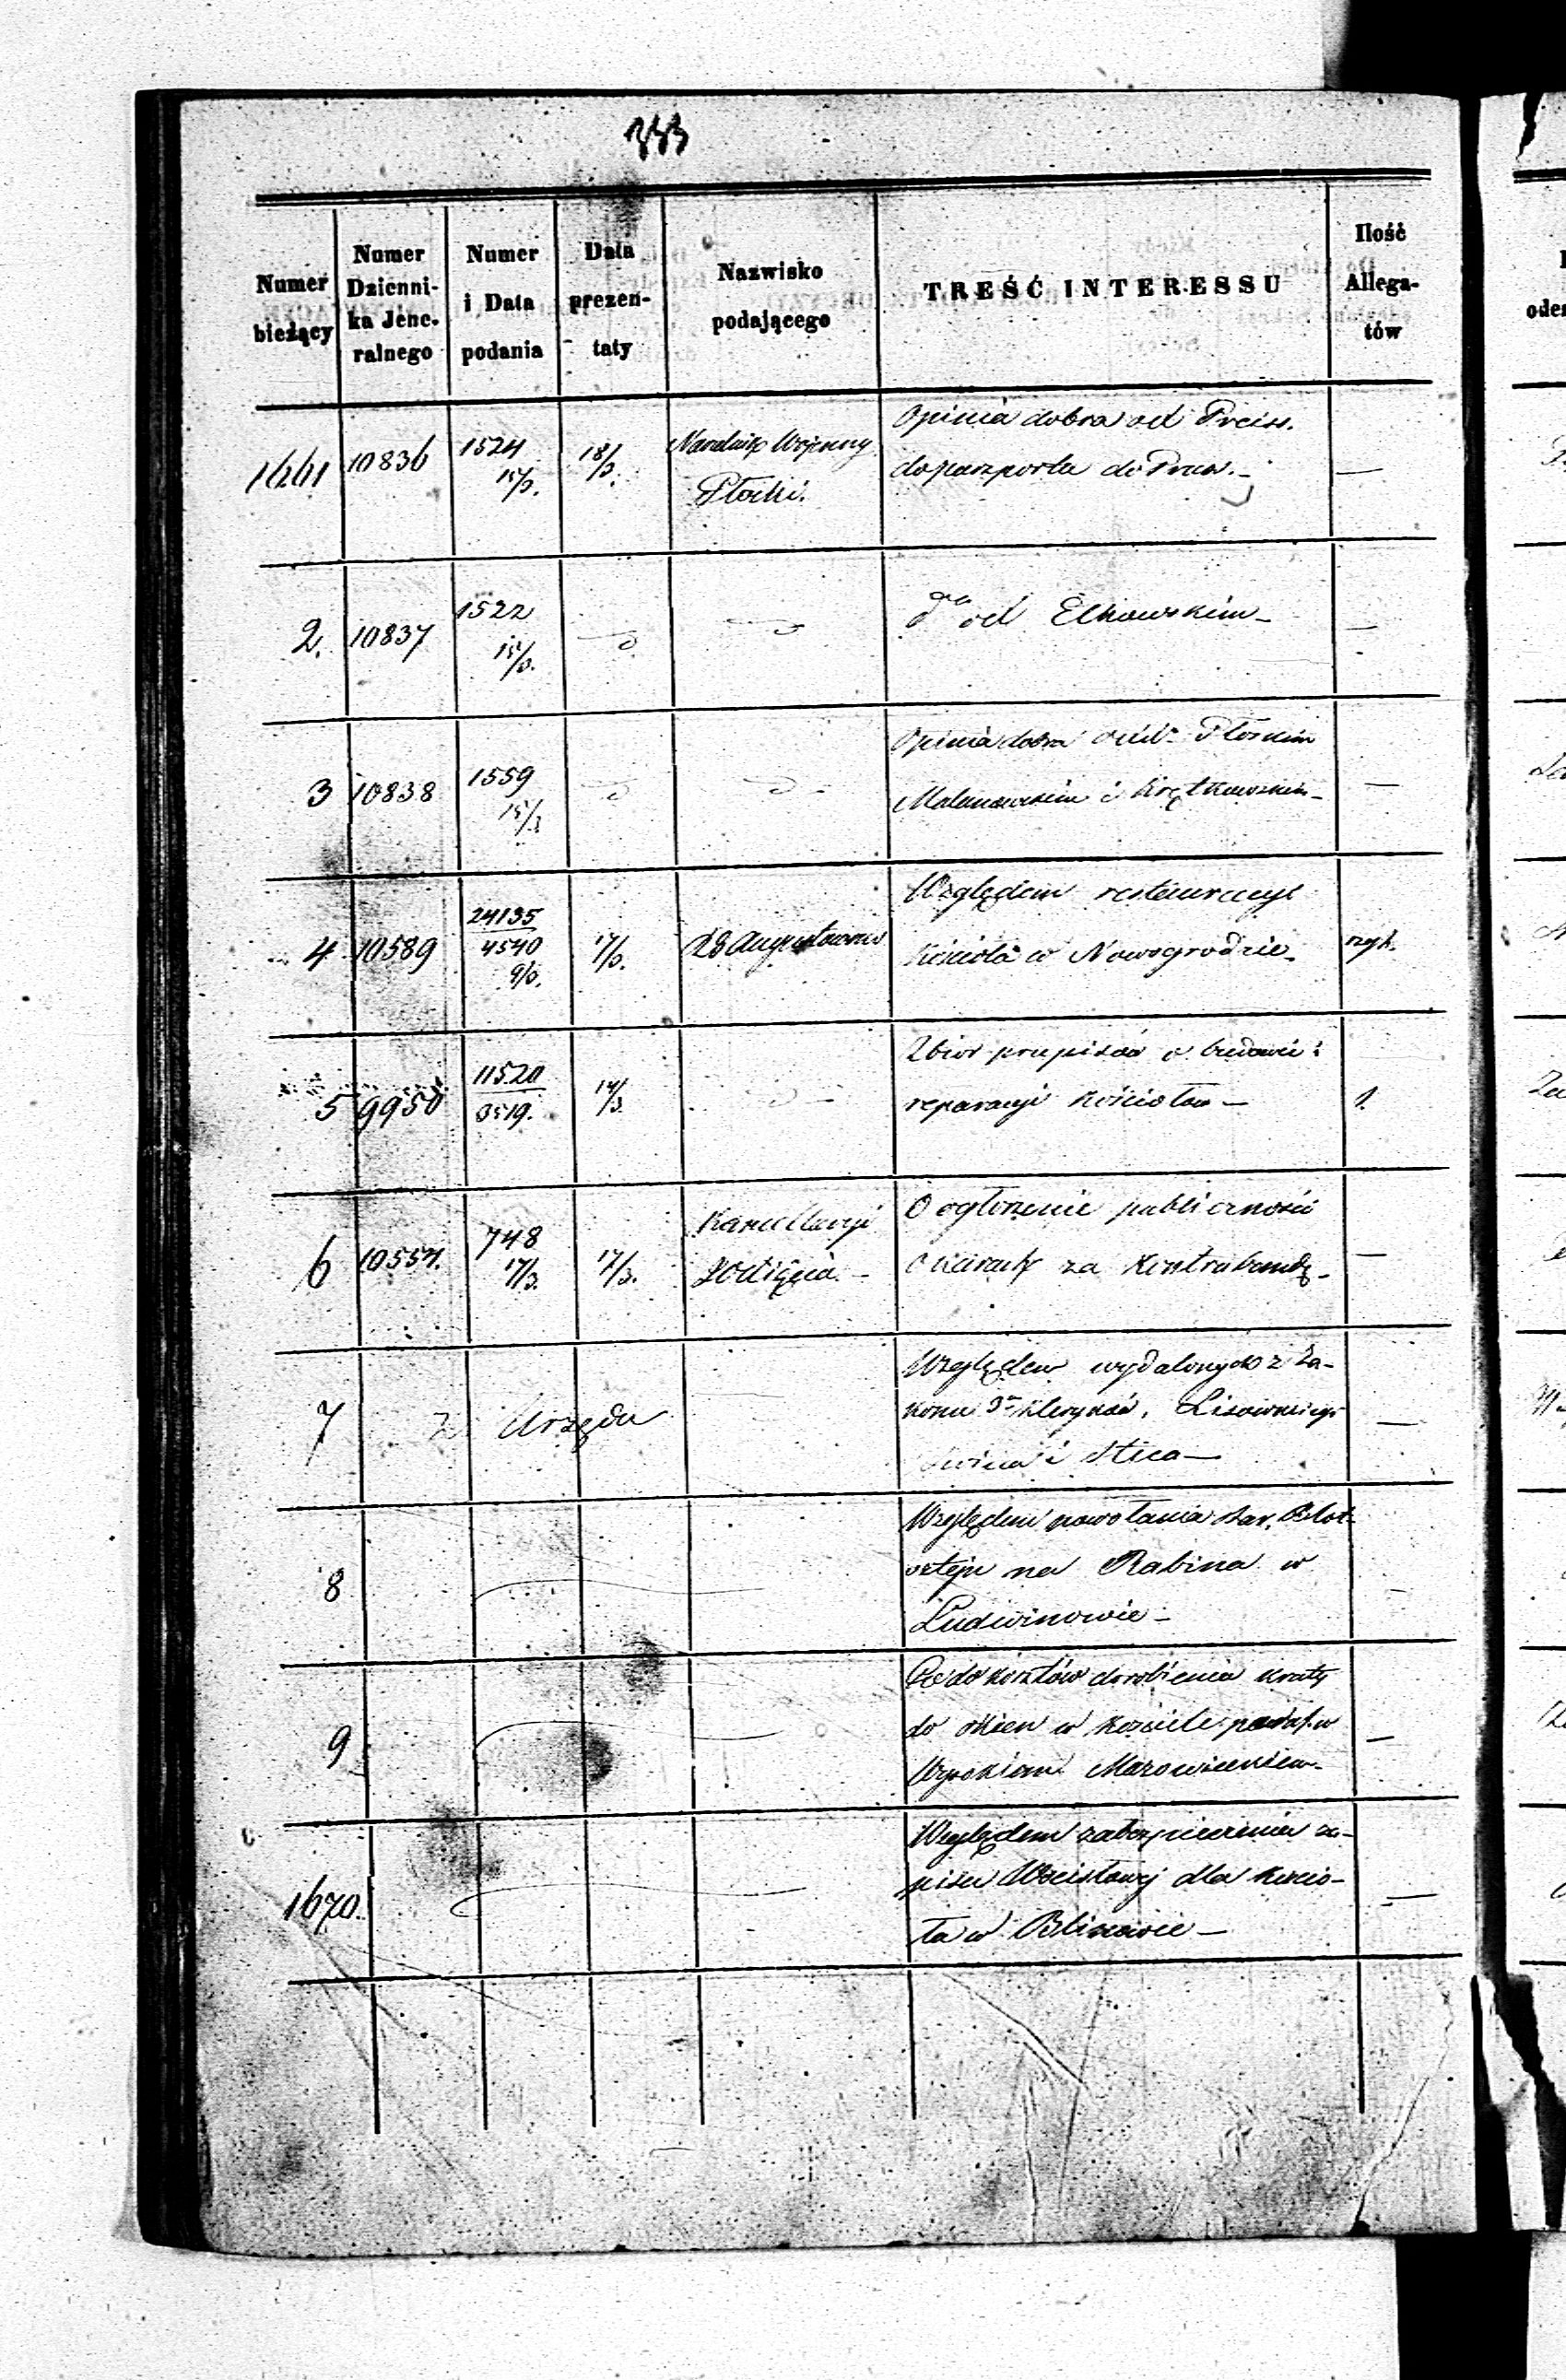 333
Numer bieżący
Numer Dzienni- ka Jene- ralnego
Numer i Data podania
Data prezen- taty
Nazwisko podającego
TREŚĆ INTERESSU
Ilość Allega- tów
1661 10836 1524 15/3. 18/3. Naczelnik Wojenny Płocki. Opinia dobra od Preiss. —
do paszportu do Prus.
2. 10837 1522 15/3. d° od Elkowskim —
3 10838 1559 15/3 Opinia dobra Płoskim —
Malanowskim i Krętkowskim
4 10589 24135 4540 9/3. 17/3. RG Augustowski Względem restauracyi
Kościoła w Nowogrodzie.
5 9950 11520 3519. 14/3 Zbiór przepisów o budowie i 1.
reparacyi Kościołów —
6 10554. 748 17/3. 17/3. Kancellaryi O ogłoszenie publiczności —
za Kontrabandę
7 Z Urzędu Względem wydalonych z Za- —
konu 3ch Kleryków, Lisowskiego
i
8 Względem powołania
na Rabina w
Ludwinowie —
9 Co do kosztów dorobienia kraty —
do okien w kościele w
Wysokiem Mazowieckiem
1670. Względem zabezpieczenia za- —
pisu dla Kościo-
ła w